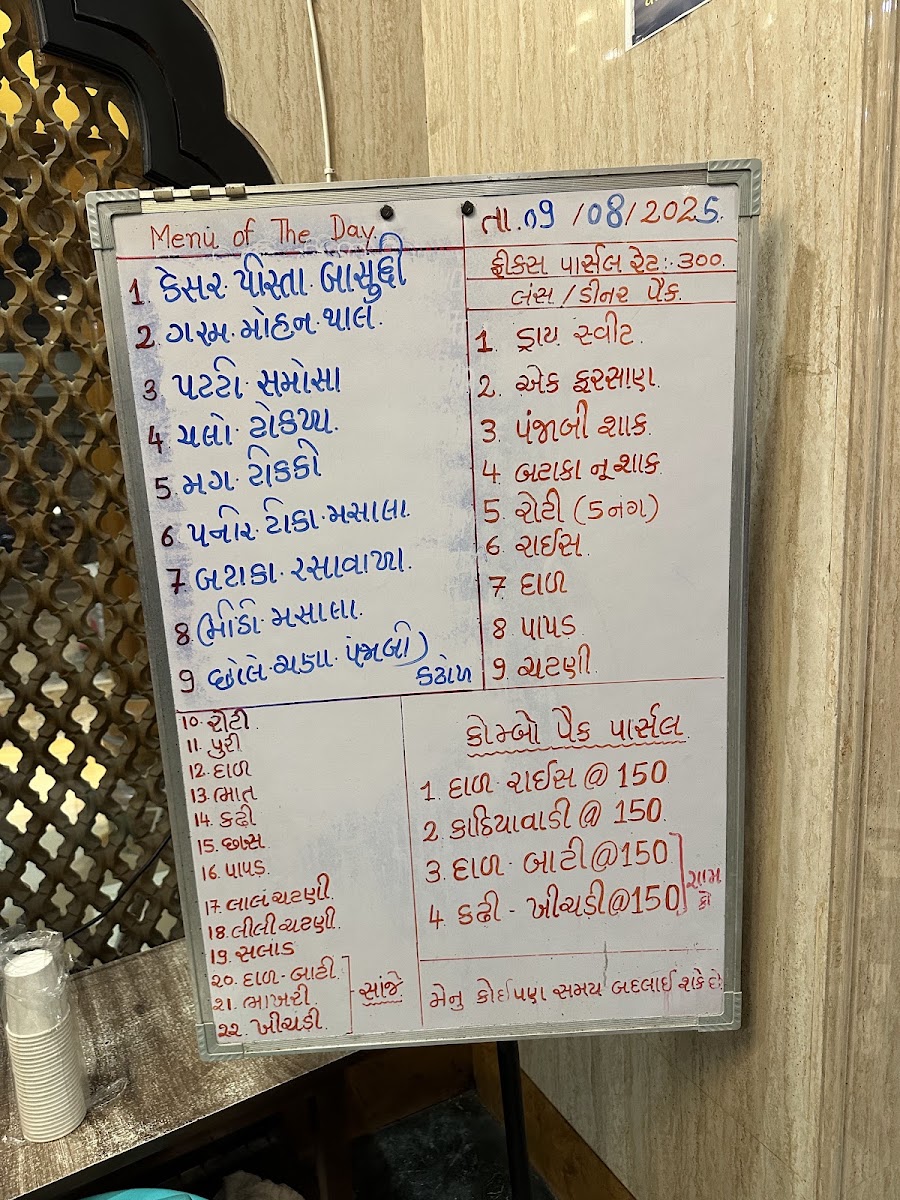 Menu of The Day.
1. કેસર પીસ્તા બાસુદી
2 ગરમ મોહન થાલ.
3 પટટી સમોસા
4 ચલો ટોકય્ય.
5 મગ ટીકકી
6 પનીર ટીકા મસાલા.
7 બટાકા રસાવાળા.
8 ભીંડી મસાલા.
9 છોલે ચણા પંજાબી)
કઠોળ
10. રોટી
11. પુરી
12. દાળ
13. ભાત
14. કઢી
15. છાસ
16. પાપડ
17. લાલ ચટણી
18. લીલી ચટણી.
19. સલાડ
૨૦. દાળ-બાટી.
૨૧. ભાખરી.
૨૨. ખીચડી.
સાંજે
તા.09/08/2025.
ફીકસ પાર્સલ રેટ:- ૩૦૦.
લંચ / ડીનર પૈક.
1. ડ્રાય સ્વીટ.
2. એક ફરસાણ.
3 પંજાબી શાક.
4 બટાકા નૂ શાક.
5. રોટી (5 નંગ)
6. રાઈસ.
7 દાળ
8 પાપડ
9. ચટણી.
કોમ્બો પૈક પાર્સલ
1. દાળ-રાઈસ @ 150
2 કાઠિયાવાડી @ 150.
3. દાળ - બાટી @150
4. કઢી - ખીચડી@150
મેનુ કોઈપણ સમય બદલાઈ શકે છે.